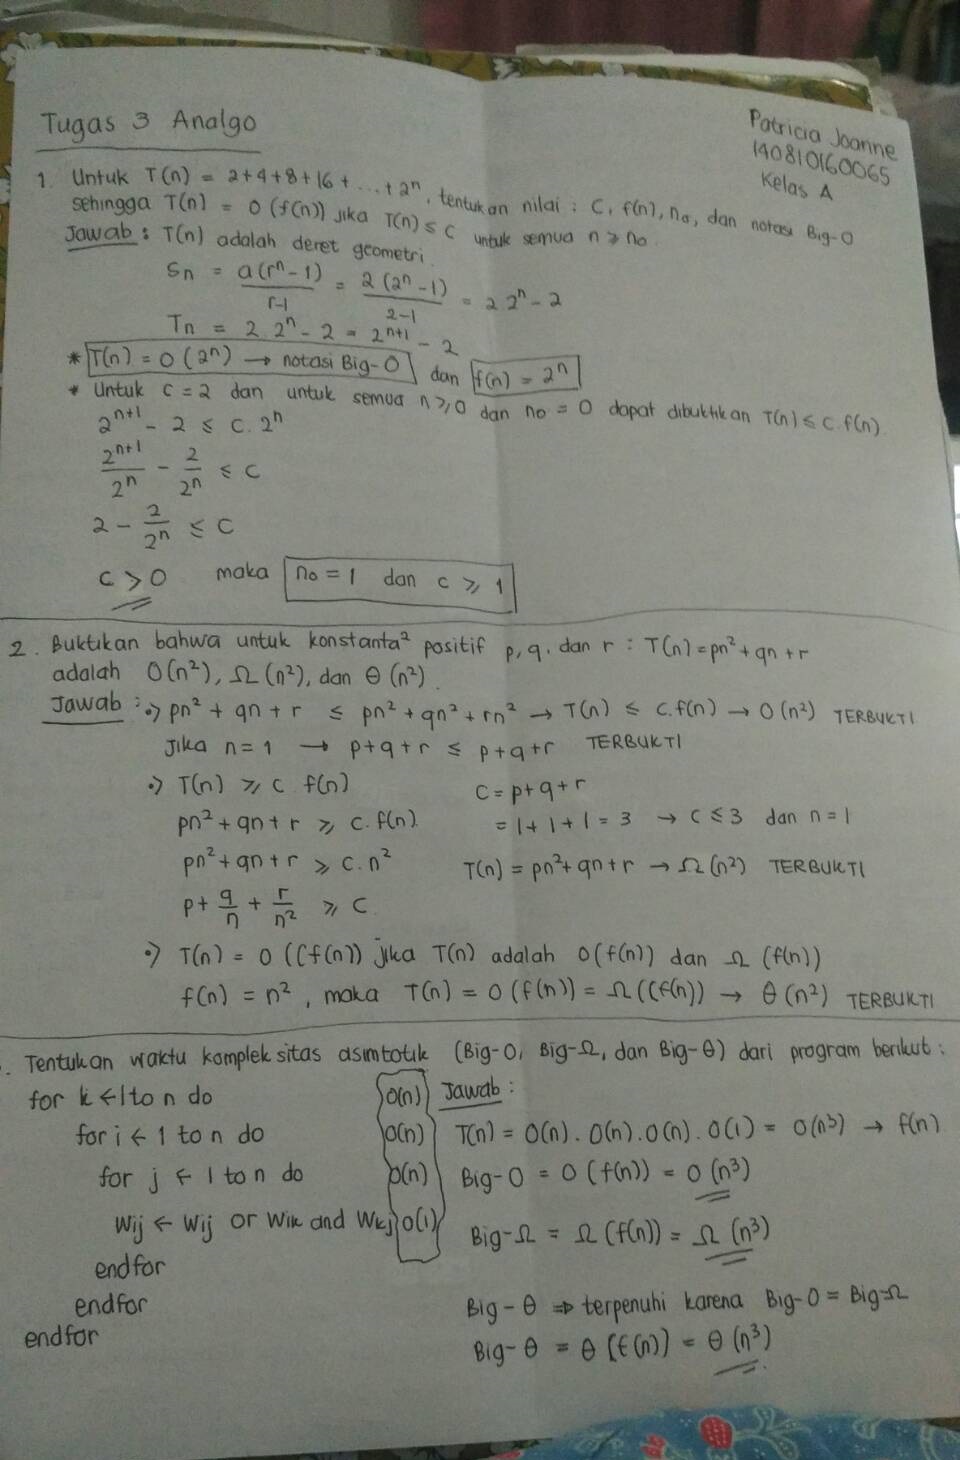 Tugas 3 Analgo
Patricia Joanne
140810160065
Kelas A
1. Untuk T(n) = 2+4+8+16+...+2ⁿ, tentukan nilai : C, f(n), n₀, dan notasi Big-O
sehingga T(n) = O(f(n)) jika T(n) ≤ C untuk semua n ≥ n₀.
Jawab : T(n) adalah deret geometri.
Sn = a(rⁿ-1)/r-1 = 2(2ⁿ-1)/2-1 = 2.2ⁿ - 2
Tn = 2.2ⁿ - 2 = 2ⁿ⁺¹ - 2
* T(n) = O(2ⁿ) → notasi Big-O dan f(n) = 2ⁿ
* Untuk c = 2 dan untuk semua n ≥ 0 dan n₀ = 0 dapat dibuktikan T(n) ≤ c.f(n)
2ⁿ⁺¹ - 2 ≤ c.2ⁿ
2ⁿ⁺¹/2ⁿ - 2/2ⁿ ≤ c
2 - 2/2ⁿ ≤ c
c > 0 maka n₀ = 1 dan c ≥ 1
2. Buktikan bahwa untuk konstanta² positif p, q, dan r : T(n) = pn² + qn + r
adalah O(n²), Ω(n²), dan θ(n²).
Jawab : •) pn² + qn + r ≤ pn² + qn² + rn² → T(n) ≤ c.f(n) → O(n²) TERBUKTI
Jika n = 1 → p+q+r ≤ p+q+r TERBUKTI
•) T(n) ≥ c f(n) c = p+q+r
pn² + qn + r ≥ c.f(n). = 1+1+1 = 3 → c ≤ 3 dan n = 1
pn² + qn + r ≥ c.n² T(n) = pn² + qn + r → Ω(n²) TERBUKTI
p + q/n + r/n² ≥ c
•) T(n) = O((f(n)) jika T(n) adalah O(f(n)) dan Ω (f(n))
f(n) = n², maka T(n) = O(f(n)) = Ω((f(n)) → θ(n²) TERBUKTI
. Tentukan waktu kompleksitas asimtotik (Big-O, Big-Ω, dan Big-θ) dari program berikut :
for k ← 1 to n do O(n) Jawab :
for i ← 1 to n do O(n) T(n) = O(n) . O(n) . O(n) . O(1) = O(n³) → f(n)
for j ← 1 to n do O(n) Big-O = O(f(n)) = O(n³)
Wij ← Wij or Wik and Wkj O(1) Big-Ω = Ω(f(n)) = Ω(n³)
endfor
endfor Big-θ ⇒ terpenuhi karena Big-O = Big-Ω
endfor Big-θ = θ(f(n)) = θ(n³)